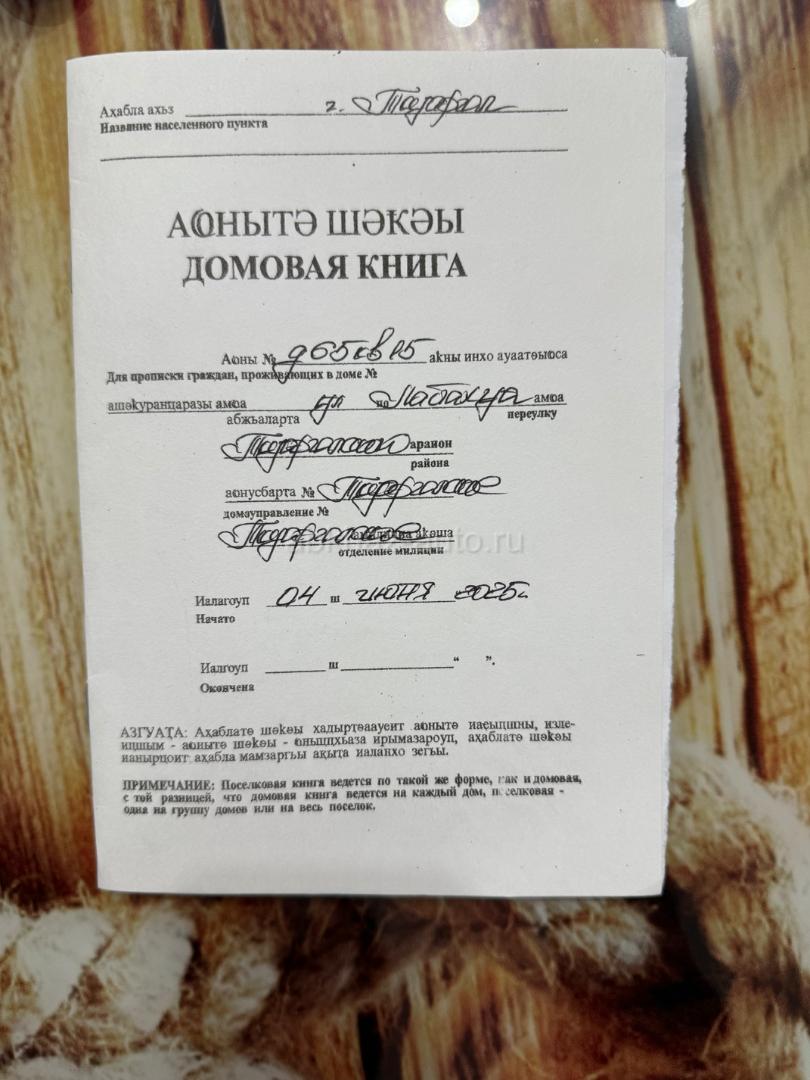 Аҳабла ахьз г.
Название населенного пункта
АҨНЫТӘ ШӘҞӘЫ
ДОМОВАЯ КНИГА
Аҩны № д 65 кв 15 аҟны инхо ауаатәыҩса
Для прописки граждан, проживающих в доме №
ашәҟуранҵаразы амҩа ул по Лабахуа амҩа
абжьаларта переулку
араион
района
аҩнусбарта №
домоуправление №
аҟәша
отделение милиции
Иалагоуп 04 ш июня 2025г
Начато
Иалгоуп ш “ ”.
Окончена
АЗГУАҬА: Аҳаблатә шәҟәы хадыртәаауеит аҩнытә иаҿыԥшны, изле-
иԥшым - аҩнытә шәҟәы - ҩныԥхьаза ирымазароуп, аҳаблатә шәҟәы
ианырҵоит аҳабла мамзаргьы ақыҭа иаланхо зегьы.
ПРИМЕЧАНИЕ: Поселковая книга ведется по такой же форме, как и домовая,
с той разницей, что домовая книга ведется на каждый дом, поселковая -
одна на группу домов или на весь поселок.